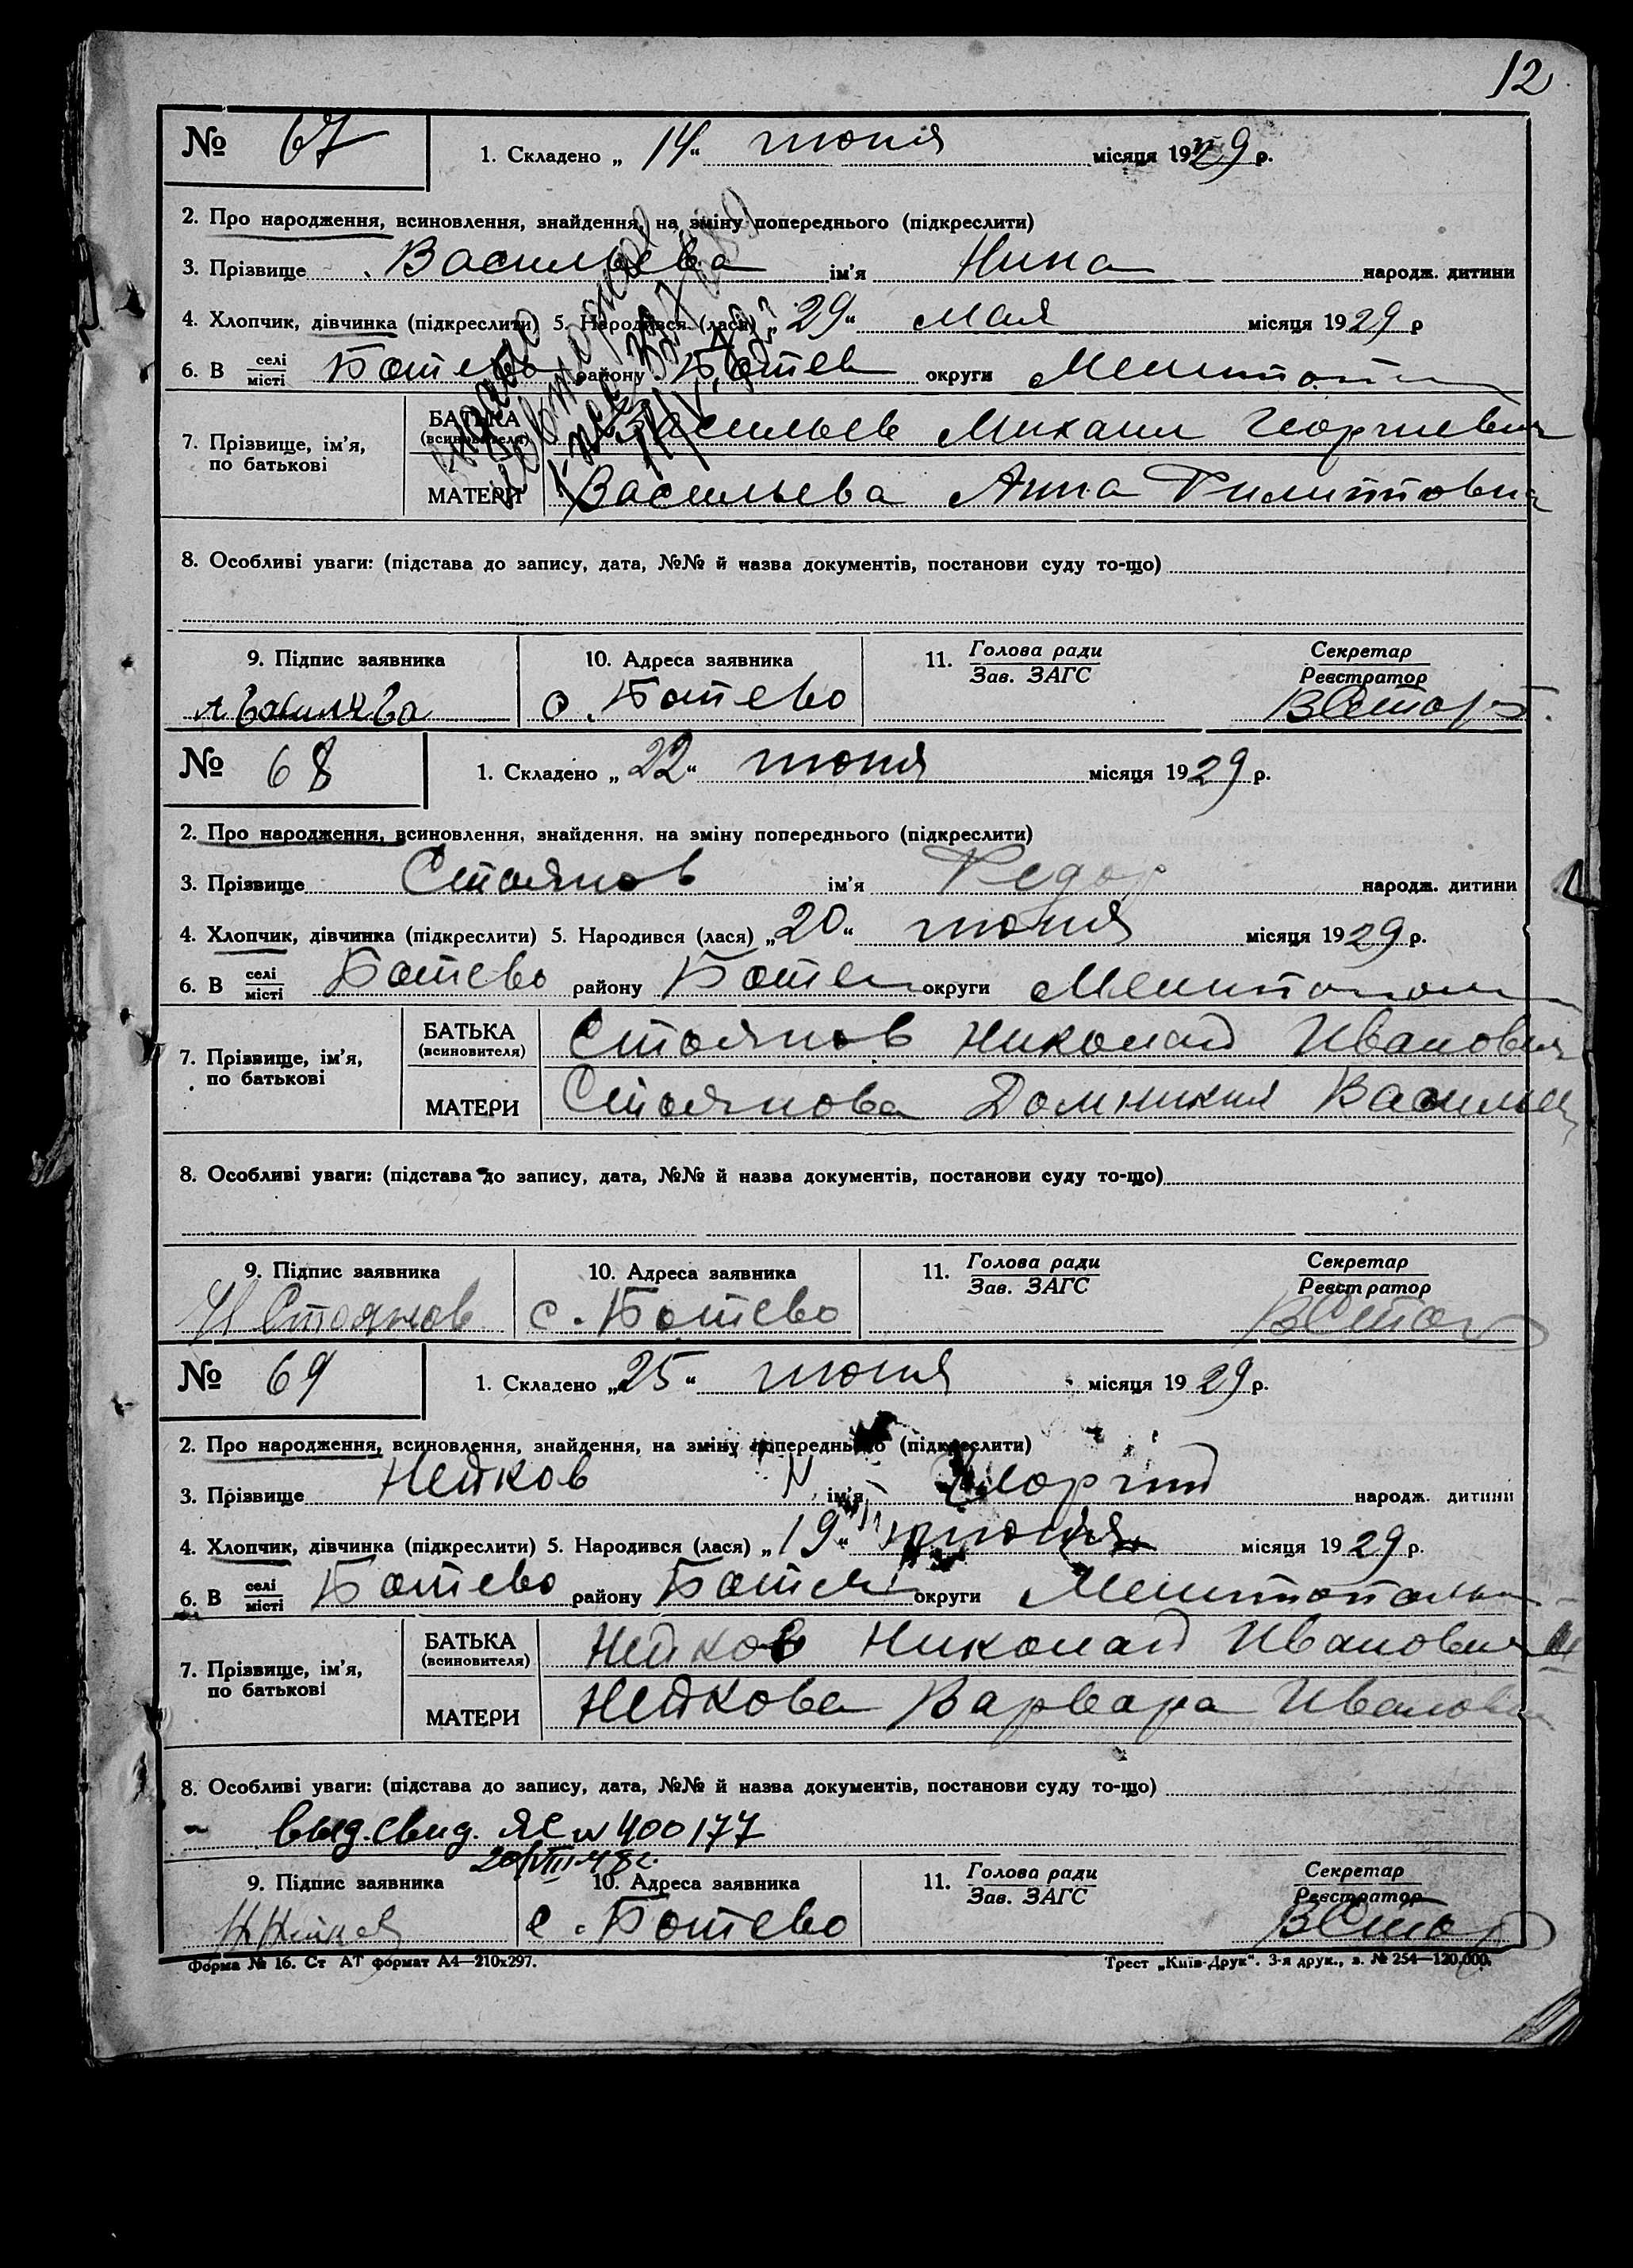 12
№ 67 1. Складено „14“ июня місяця 1929 р.
2. Про народження, всиновлення, знайдення, на зміну попереднього (підкреслити)
3. Прізвище Васильева ім'я Нина народж. дитини
4. Хлопчик, дівчинка (підкреслити) 5. Народився (лася) „29“ мая місяця 1929 р
6. В селі/місті Ботево району Ботев округи
7. Прізвище, ім'я, по батькові
БАТЬКА (всиновителя) Васильев Михаил Георгиевич
МАТЕРИ Васильева Анна Филипповна
8. Особливі уваги: (підстава до запису, дата, №№ й назва документів, постанови суду то-що)
9. Підпис заявника 10. Адреса заявника 11. Голова ради/Зав. ЗАГС Секретар/Реєстратор
с. Ботево
№ 68 1. Складено „22“ июня місяця 1929 р.
2. Про народження, всиновлення, знайдення, на зміну попереднього (підкреслити)
3. Прізвище Стоянов ім'я Федор народж. дитини
4. Хлопчик, дівчинка (підкреслити) 5. Народився (лася) „20“ июня місяця 1929 р.
6. В селі/місті Ботево району Ботев округи
7. Прізвище, ім'я, по батькові
БАТЬКА (всиновителя) Стоянов Николай Иванович
МАТЕРИ Стоянова Домникия
8. Особливі уваги: (підстава до запису, дата, №№ й назва документів, постанови суду то-що)
9. Підпис заявника 10. Адреса заявника 11. Голова ради/Зав. ЗАГС Секретар/Реєстратор
Н Стоянов с. Ботево
№ 69 1. Складено „25“ июня місяця 1929 р.
2. Про народження, всиновлення, знайдення, на зміну попереднього (підкреслити)
3. Прізвище Нейков ім'я Георгий народж. дитини
4. Хлопчик, дівчинка (підкреслити) 5. Народився (лася) „19“ июня місяця 1929 р.
6. В селі/місті Ботево району округи
7. Прізвище, ім'я, по батькові
БАТЬКА (всиновителя) Нейков Николай Иванович
МАТЕРИ Нейкова Варвара Ивановна
8. Особливі уваги: (підстава до запису, дата, №№ й назва документів, постанови суду то-що)
выд. свид. ЯС № 400177
20/VIII-48г.
9. Підпис заявника 10. Адреса заявника 11. Голова ради/Зав. ЗАГС Секретар/Реєстратор
с. Ботево
Форма № 16. Ст АТ формат А4—210х297. Трест „Київ-Друк“. 3-я друк., з. № 254—120.000.